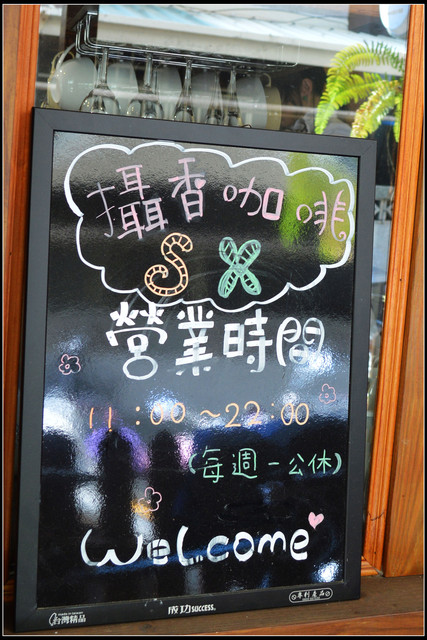 攝香咖啡
SX
營業時間
11:00~22:00
(每週一公休)
Welcome
台灣精品
成功 SUCCESS.
專利產品